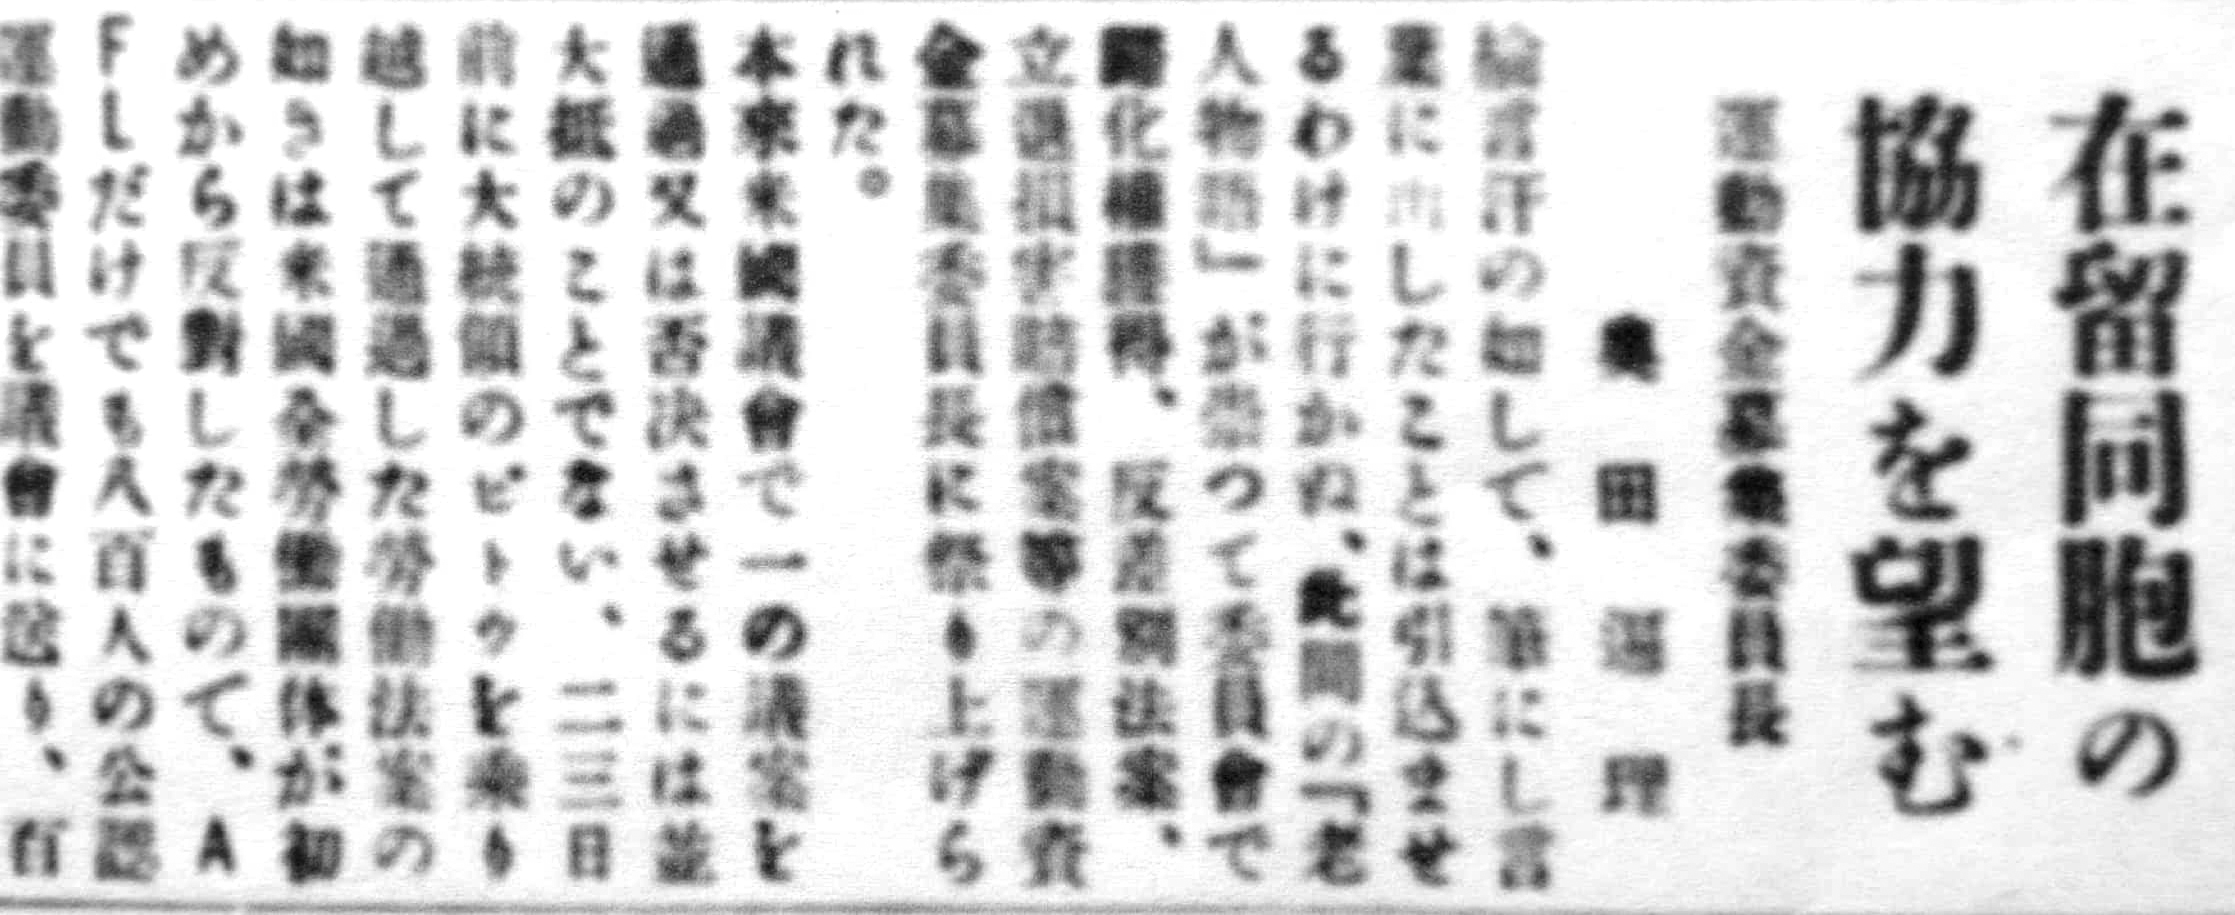 在留同胞の
協力を望む
運動資金募集委員長
奥田運理
綸言汗の如して、筆にし言
葉に出したことは引込ませ
るわけに行かぬ、此間の「老
人物語」が祟つて委員會で
歸化權獲得、反差別法案、
立退損害賠償案等の運動資
金募集委員長に祭り上げら
れた。
本來米國議會で一の議案を
通過又は否決させるには並
大抵のことでない、二三日
前に大統領のビトウを乘り
越して通過した勞働法案の
如きは米國全勞働團体が初
めから反對したものて、A
FLだけでも八百人の公認
運動委員を議會に送り、百